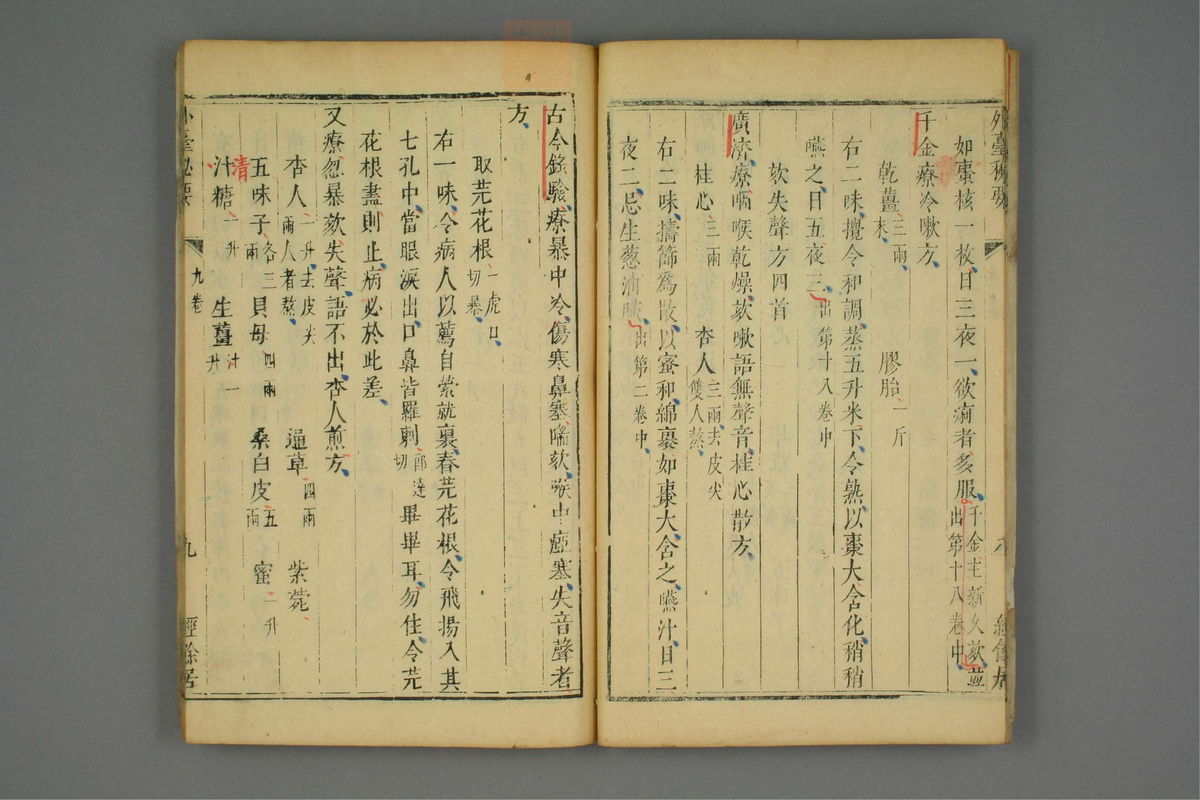 外臺秘要
如棗核一枚日三夜一欲瘹者多服千金主新久欬並出第十八卷中
千金療冷嗽方
乾薑三兩末 膠胎一斤
右二味攪令和調蒸五升米下令熟以棗大含化稍稍
嚥之日五夜三出第十八卷中
欬失聲方四首
廣濟療咽喉乾燥欬嗽語無聲音桂心散方
桂心三兩 杏人三兩去皮尖雙人熬
右二味擣篩為散以蜜和綿裹如棗大含之嚥汁日三
夜二忌生葱油膩出第二卷中
古今錄驗療暴中冷傷寒鼻塞喘欬喉中瘂塞失音聲者
方
取芫花根一虎口切暴
右一味令病人以薦自縈就裹舂芫花根令飛揚入其
七孔中當眼淚出口鼻皆羅刺郎達切畢畢耳勿住令芫
花根盡則止病必於此差
又療忽暴欬失聲語不出杏人煎方
杏人一升去皮尖兩人者熬 通草四兩 紫菀
五味子各三兩 貝母四兩 桑白皮五兩 蜜一升
清
汁糖一升 生薑汁一升
外臺秘要 九卷 九 經餘居